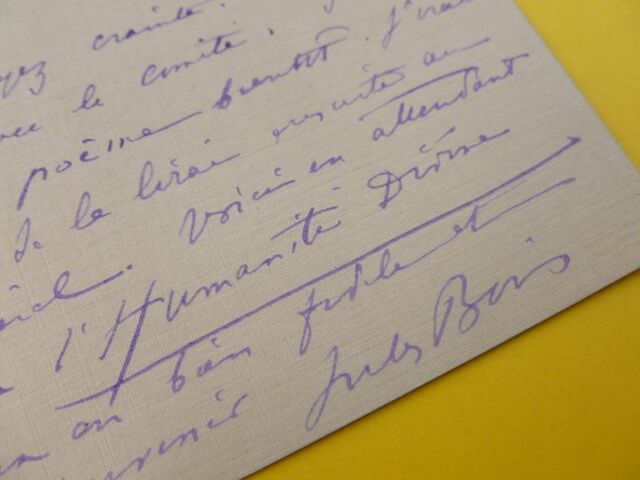 crainte.
le comité.
poème bientôt. J'irai
de la lirai ensuite au
Voici en attendant
l'Humanité Divine
un bien fidèle et
Jules Bois